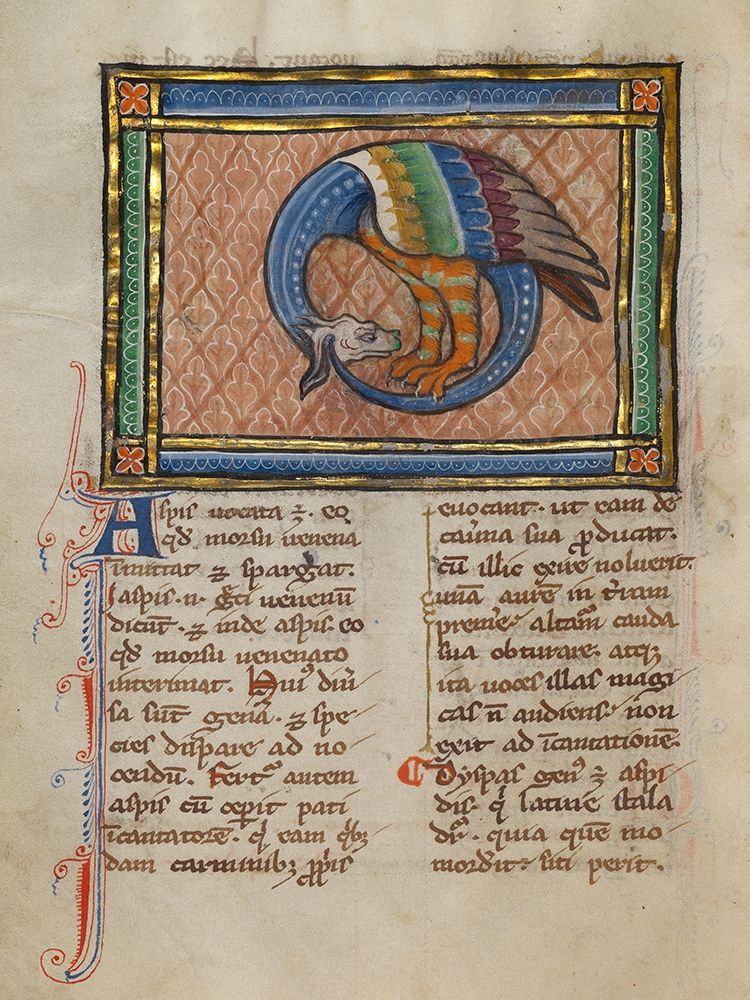 Aspis uocata ⁊. eo
qd morsu uenena
imittat ⁊ spargat.
Iaspis .n. Gci uenenū
dicūt. ⁊ inde aspis. eo
qd morsu uenenato
interimat. Huiꝰ diu͛
sa sūt gen̄a. ⁊ spe
cies dispare ad no
cendū. Fert̾ autem
aspis cū ceperit pati
īcantatorē. q̇ eam qͥbꝫ
dam carminibꝫ ꝓpͥis
euocant. ut eam de
cau̾na sua ꝓducat.
cū illic exire noluerit.
unā aurē in t̾ram
preme. altam̄ cauda
sua obturare. atqꝫ
ita uoces illas magi
cas n̄ audiens. non
exit ad īcantationē.
Dyspas genꝰ ⁊ aspi
dis. q̇ latine stala
dr̄. quia quē mo
morderit. siti perit.